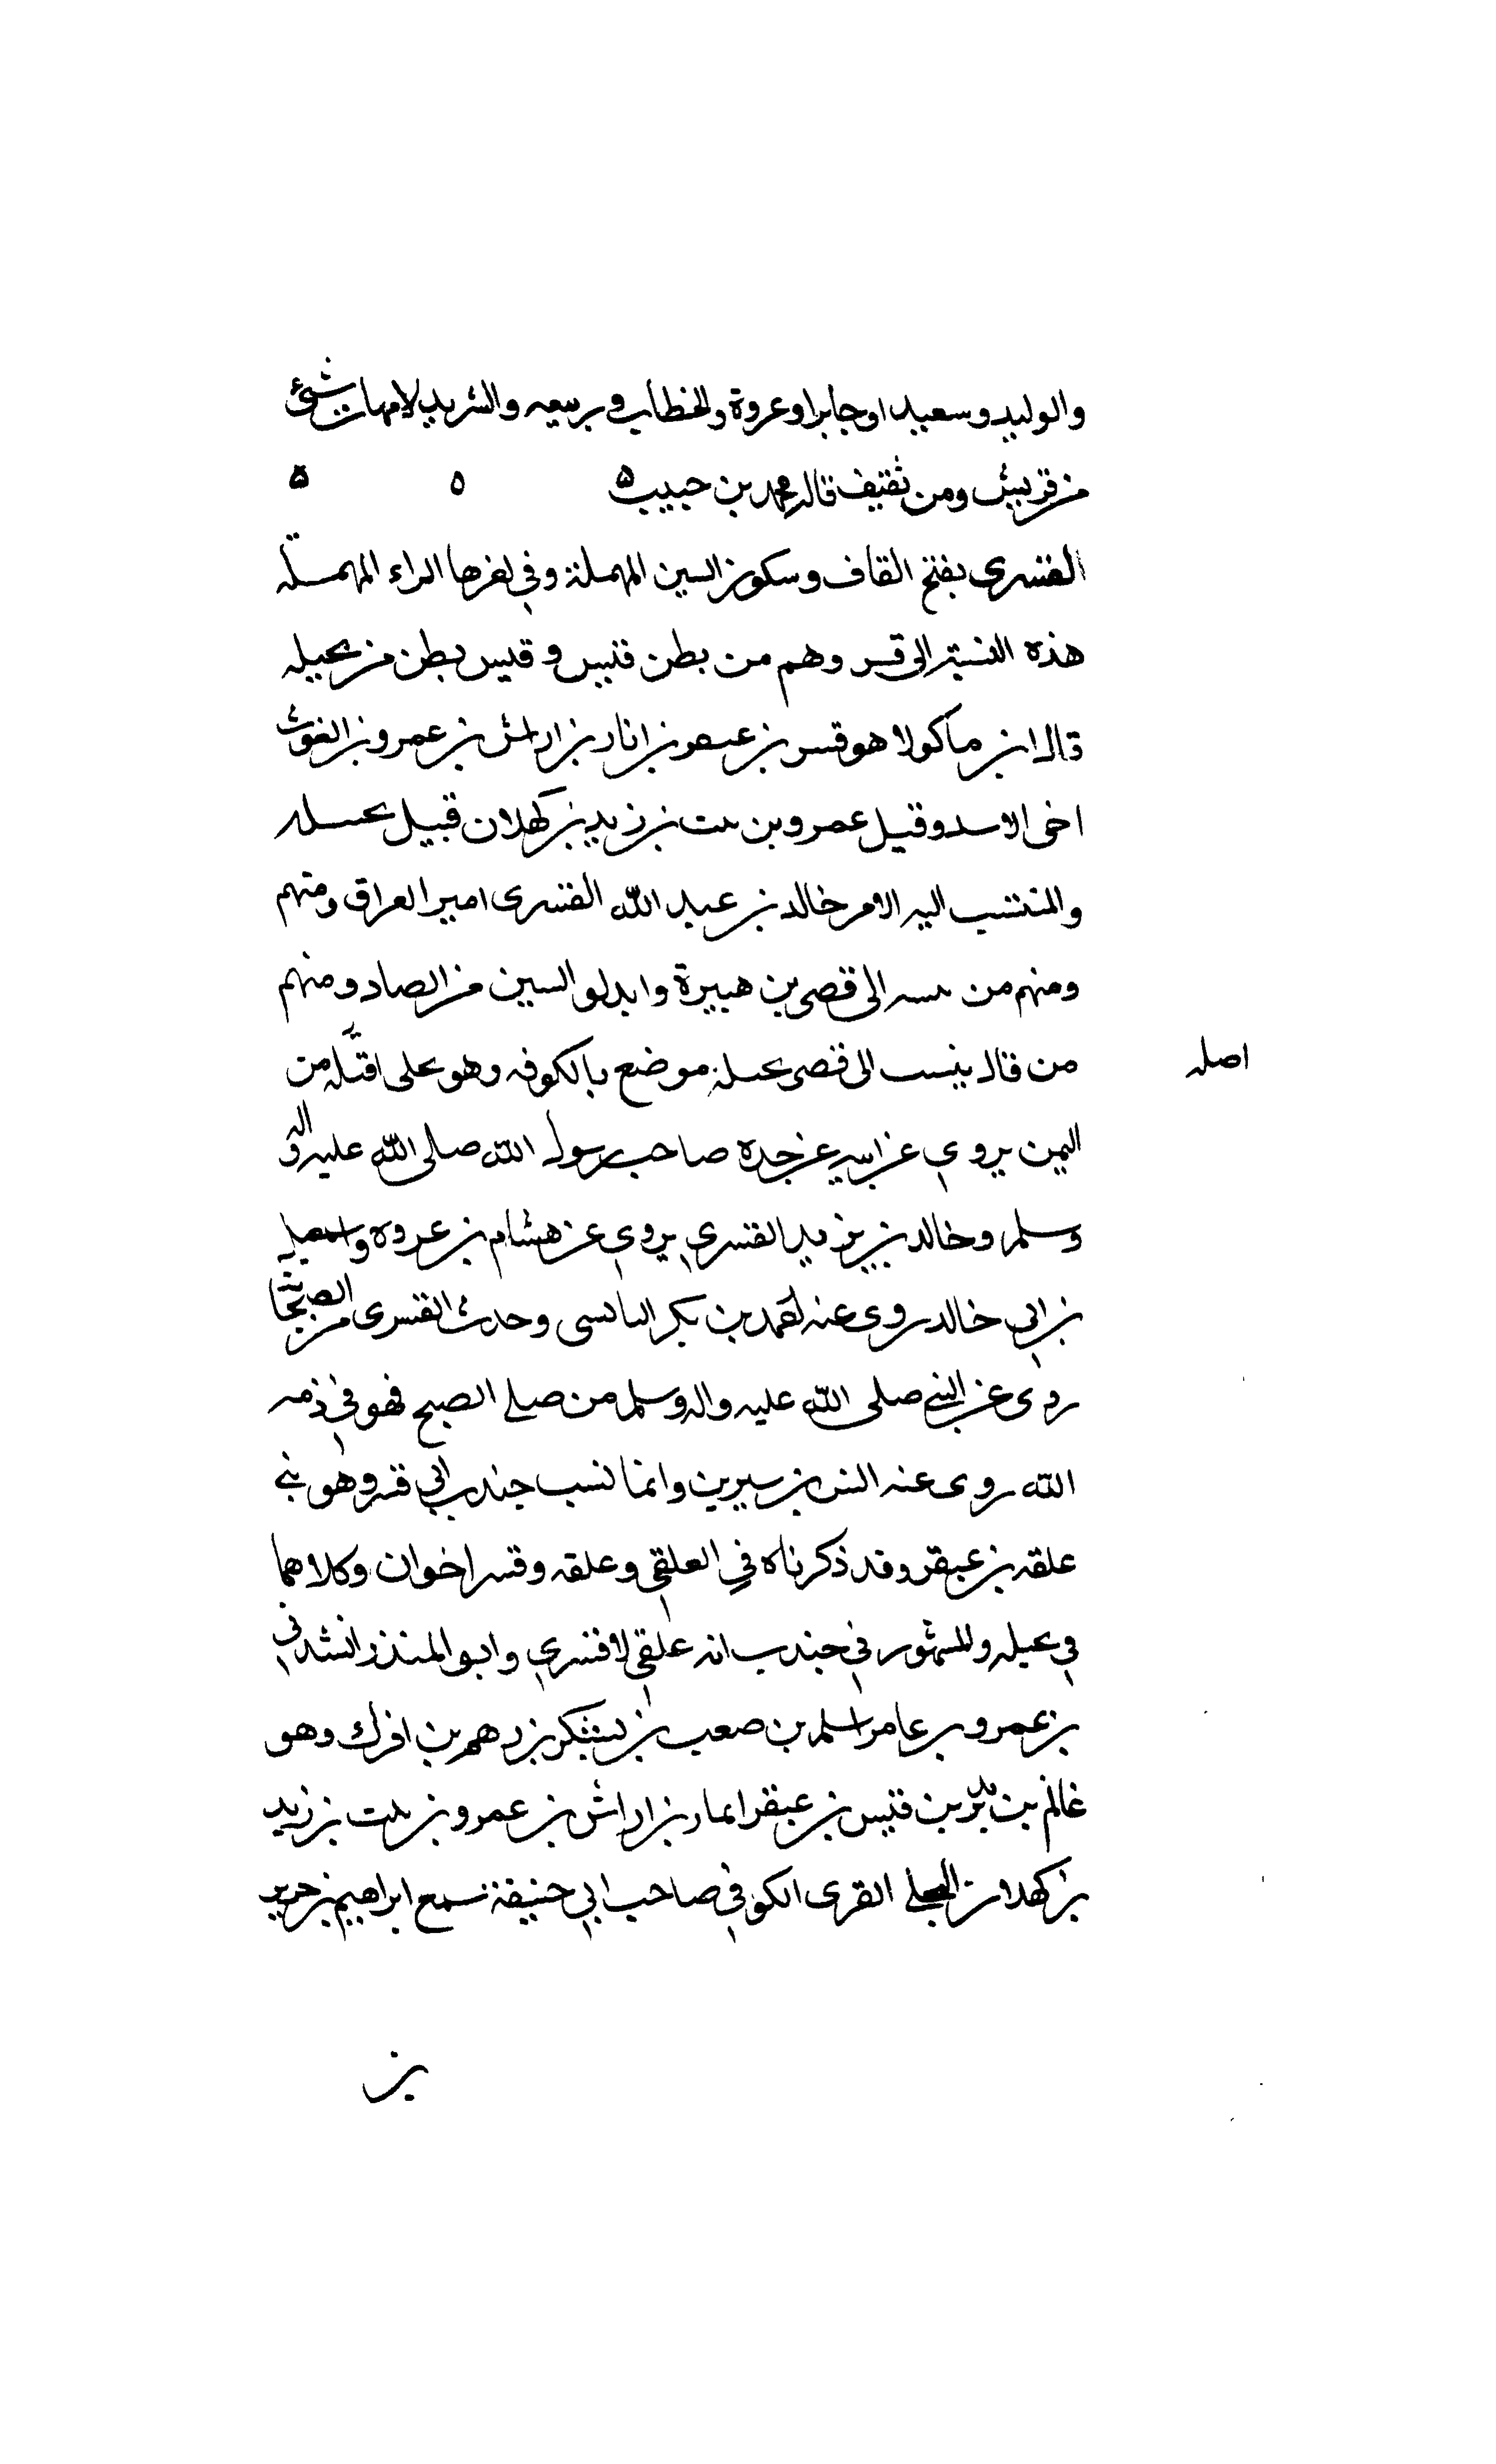 والوليد وسعيد اوجابرا وعروة والخطاب وربيعه والشريد لامهات شتى
من قريش ومن ثقيف قاله محمد بن حبيب ه ه ه
القسرى بفتح القاف وسكون السين المهملة وفي اخرها الراء المهملة
هذه النسبة الى قسر وهم من بطن قيس وقيس بطن من بجيله
قال ابن ماكولا هو قسر بن عبقر بن انار بن اراش بن عمرو بن الغوث
اخى الاسد وقيل عمرو بن نبت بن زيد بن كهلان قبيل بجيله
والمنتسب اليه الامر خالد بن عبد الله القسرى امير العراق ومنهم
ومنهم من نسبه الى قصر بن هبيرة وابدلو السين من الصاد ومنهم
من قال ينسب الى قصر بجيلة موضع بالكوفه وهو على اقتله من
اصله
اليمن يروي عن ابيه عن جده صاحب رسول الله صلى الله عليه واله
وسلم وخالد بن يزيد القسري يروي عن هشام بن عروه واسمعيل
بن ابي خالد روى عنه محمد بن بكر البالسى وحدث القسرى من الصحابة
روى عن النبي صلى الله عليه واله وسلم من صلى الصبح فهو في ذمه
الله روى عنه انس بن سيرين وانما نسب جندب الى قسر وهو بنى
علقه بن عبقر وقد ذكرناه في العلقي وعلقه وقسر اخوان وكلاهما
في بجيله والمشهور في جندب انه علقي لا قسري وابو المنذر اسد
بن عمرو بن عامر اسلم بن صعب بن يشكر بن رهم بن افرك وهو
غانم بن نذير بن قيس بن عبقر انمار بن اراش بن عمرو بن نبت بن زيد
بن كهلان البجلي القسرى الكوفي صاحب ابي حنيفة سمع ابراهيم بن جرير
بن